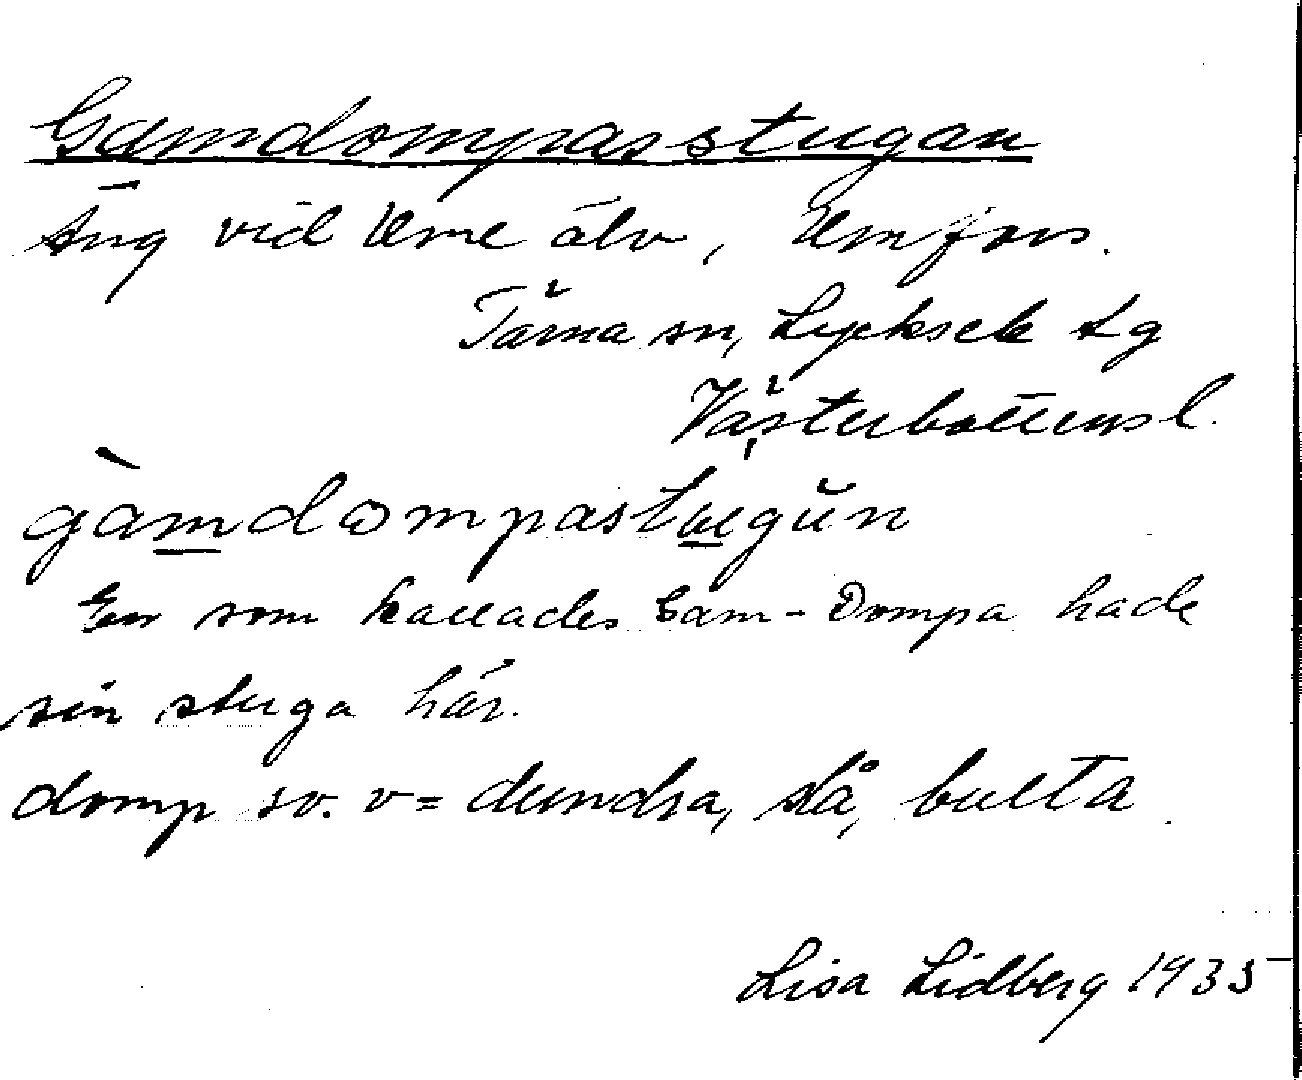 Gamdompasstugan
Äng vid Ume älv, Umfors.
Tärna sn, Lycksele Lg
Västerbottens l.
gàmdωmpastu̲gŭn
En som kallades Gam-Dompa hade
sin stuga här.
domp sv. v = dundra, slå, bulta.
Lisa Lidberg 1935